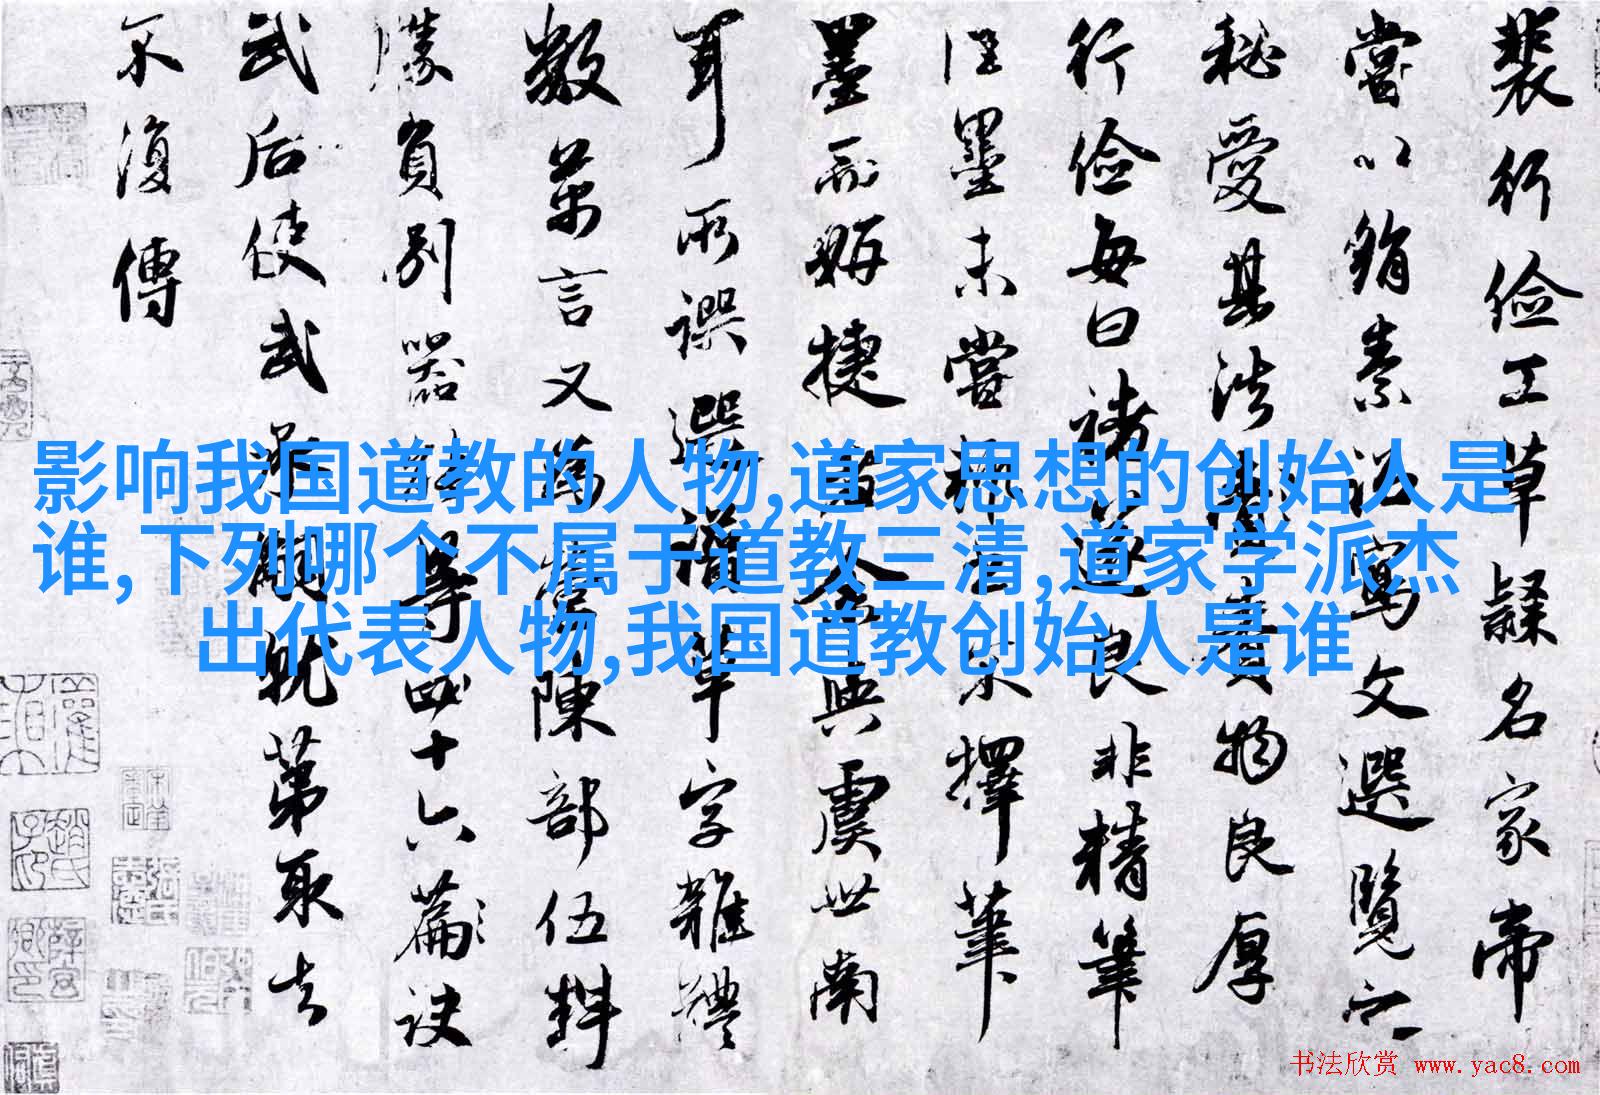 裴行俭工草隸名家帝
嘗以絹素诏寫文選覽之
秘愛其法賚物良厚
行俭每曰褚遂良非精筆
佳墨未嘗
擇筆
墨而妍捷
余與虞世南
耳所譔選
草字雜體
數萬言又為
陳部伍料
勝負別器能
等四十六篇訣
武后使武
就第取去
不復傳
影响我国道教的人物,道家思想的创始人是
谁,下列哪个不属于道教三清,道家学派杰
出代表人物,我国道教创始人是谁
书法欣赏 www.yac8.com